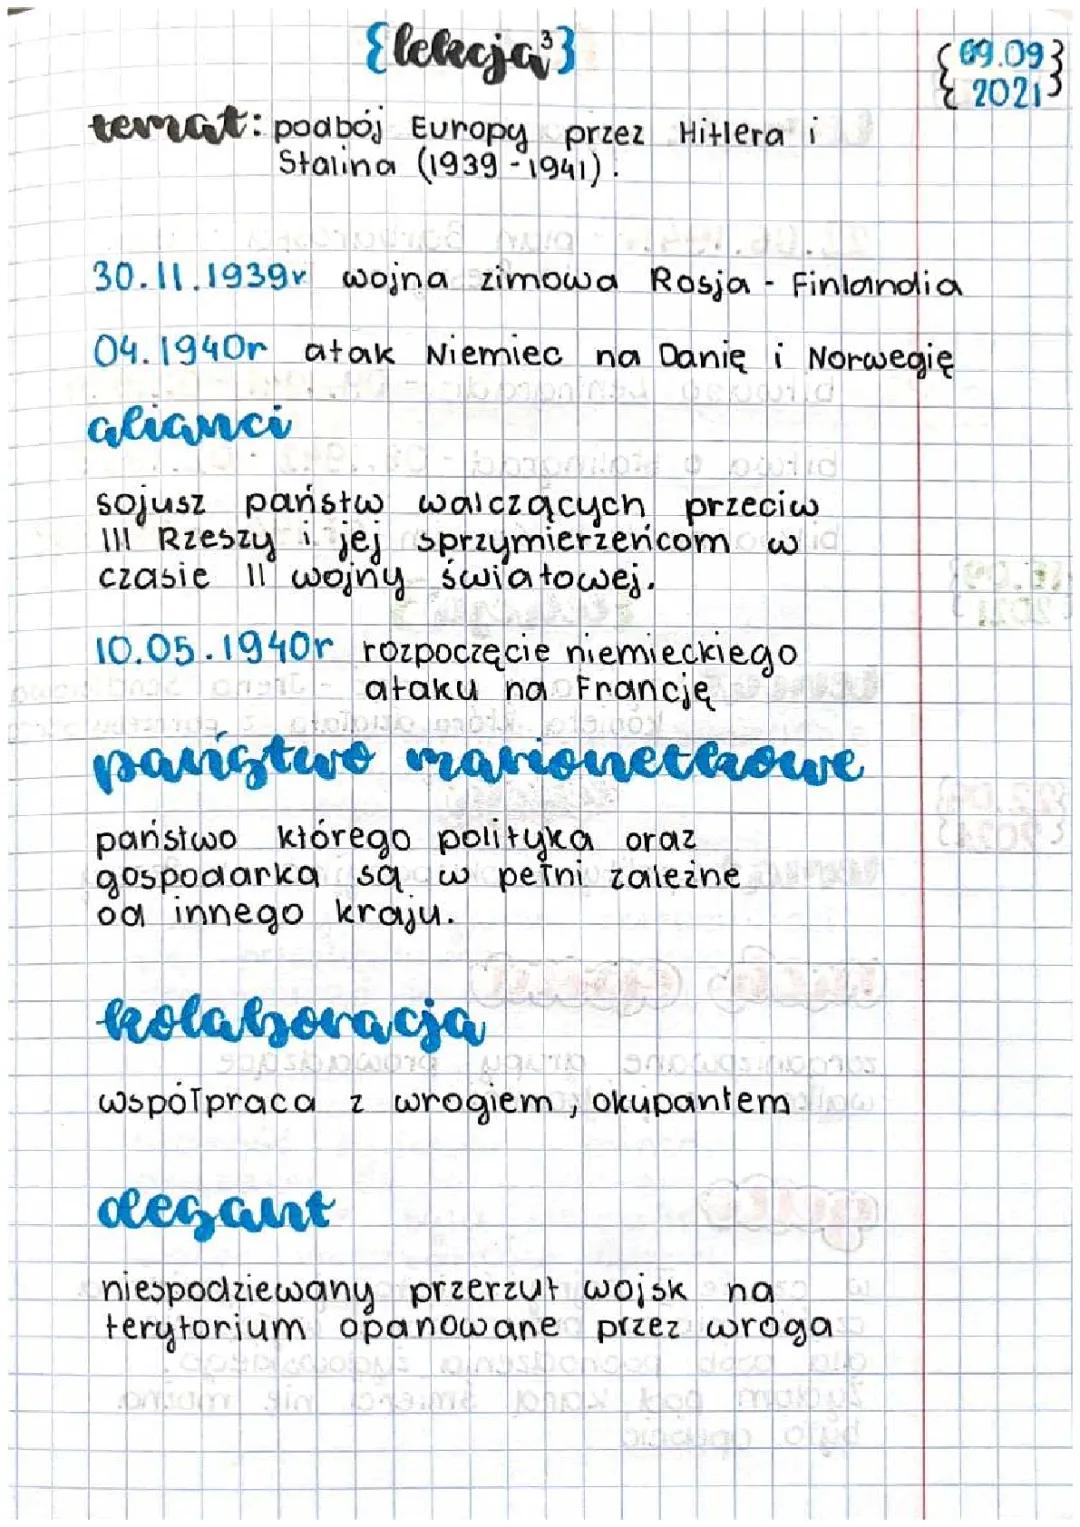 {lekcja 3}
{09.09
2021}
temat: podbój Europy przez Hitlera i
Stalina (1939-1941).
30.11.1939r wojna zimowa Rosja - Finlandia
04.1940r atak Niemiec na Danię i Norwegię
alianci
sojusz państw walczących przeciw
III Rzeszy i jej sprzymierzeńcom w
czasie II wojny światowej.
10.05.1940r rozpoczęcie niemieckiego
ataku na Francję
państwo marionetkowe
państwo którego polityka oraz
gospodarka są w pełni zależne
od innego kraju.
kolaboracja
współpraca z wrogiem, okupantem
desant
niespodziewany przerzut wojsk na
terytorium opanowane przez wroga